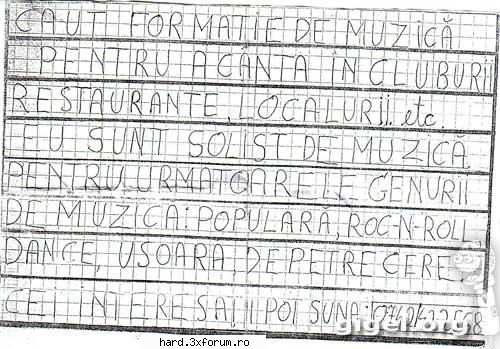 CAUT FORMAȚIE DE MUZICĂ
PENTRU A CÂNTA ÎN CLUBURII
RESTAURANTE, LOCALURII. etc.
EU SUNT SOLIST DE MUZICĂ
PENTRU URMATOARELE GENURII
DE MUZICA: POPULARĂ, ROC-N-ROLL
DANCE, USOARA, DE PETRECERE.
CEI INTERESAȚII POT SUNA:
gigel.org
hard.3xforum.ro